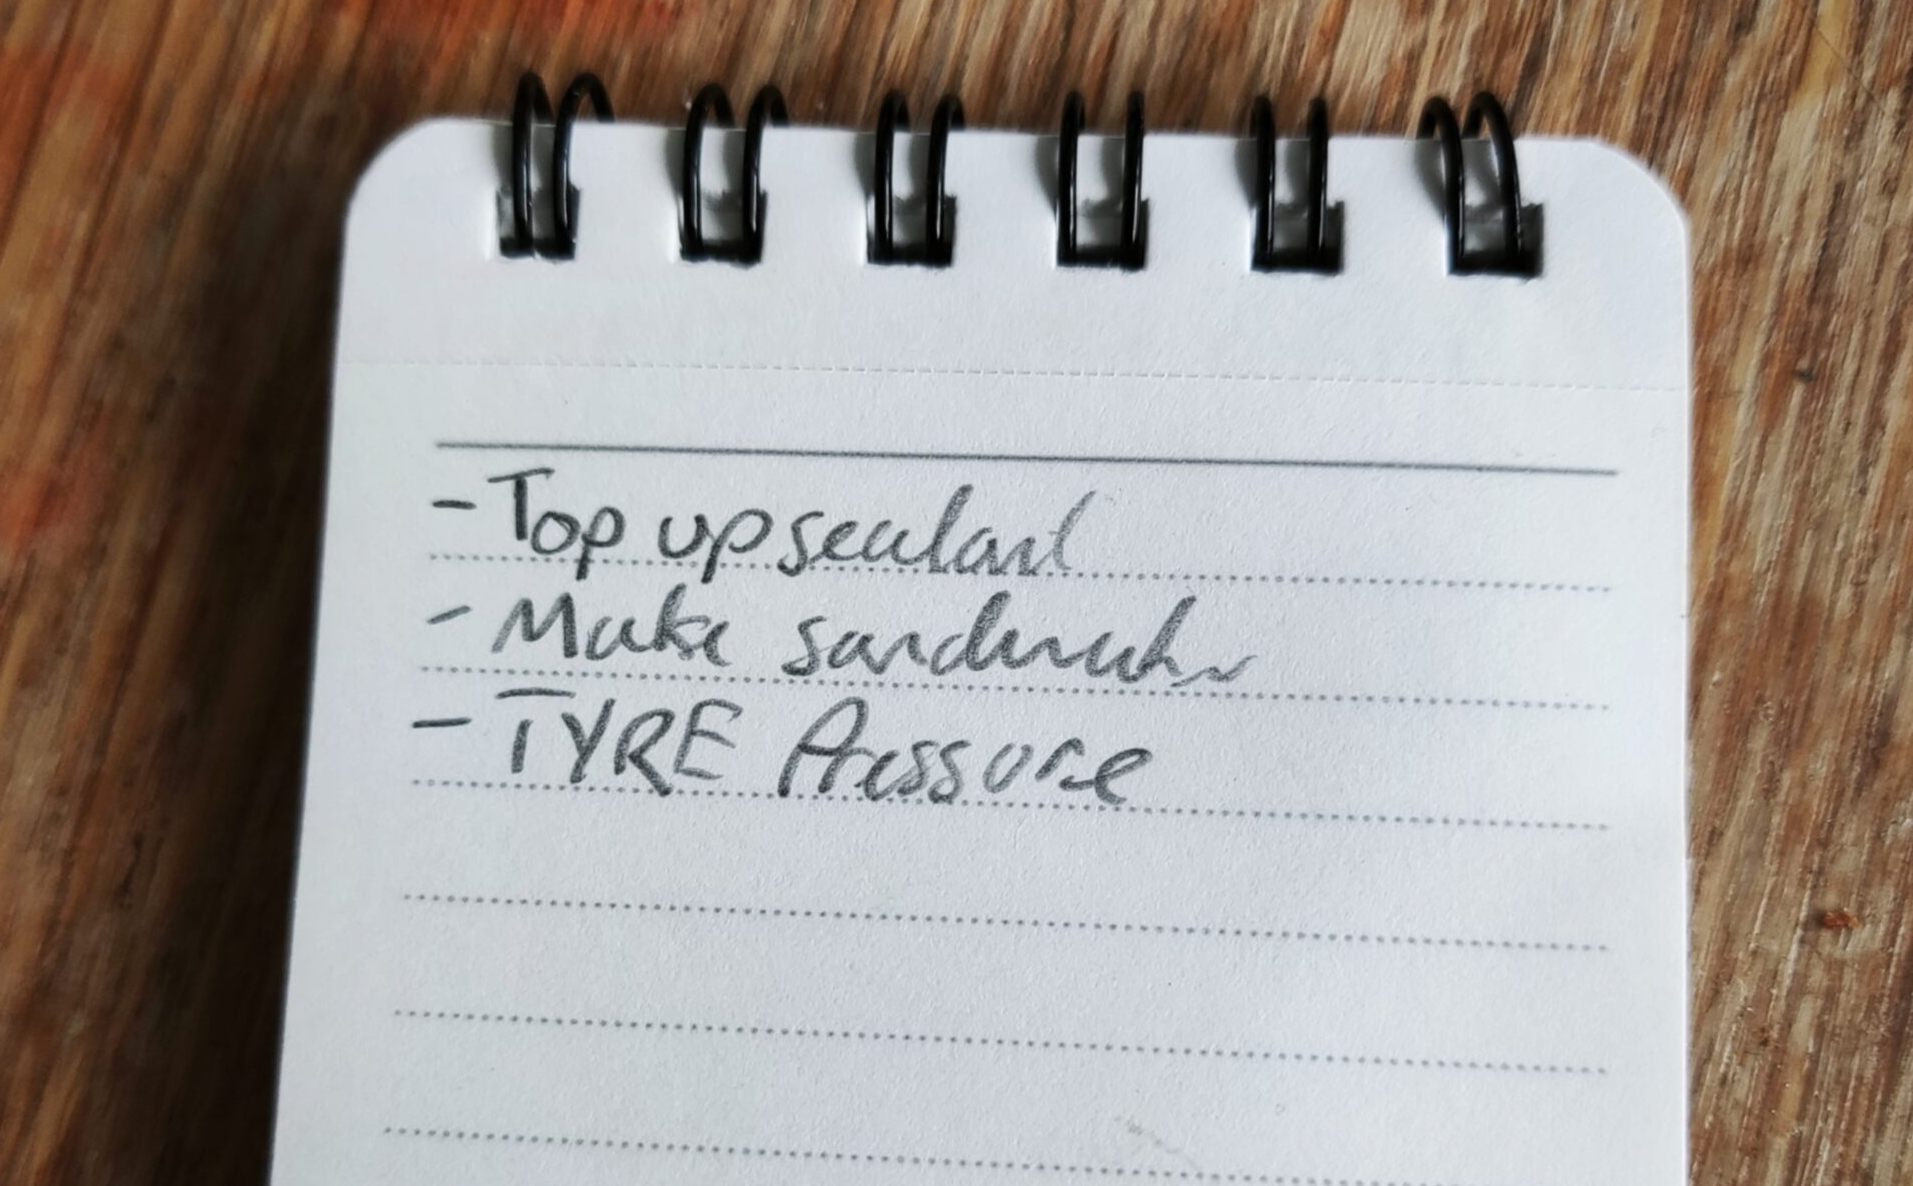 - Top up sealant
- Make sandwiches
- TYRE Pressure